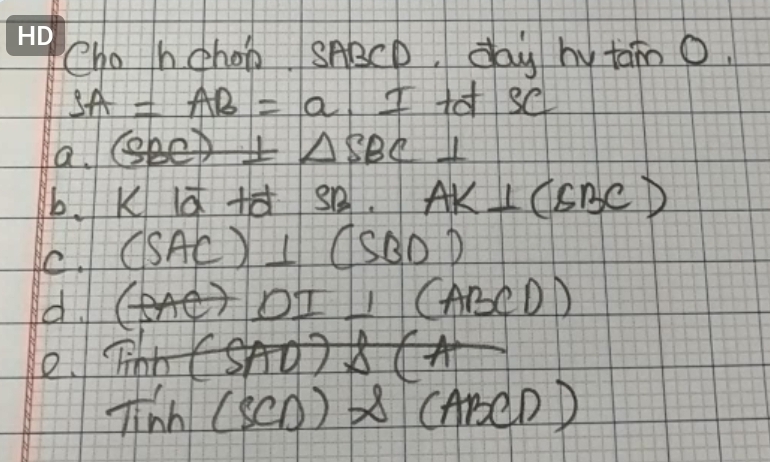 HD
Cho h chóp. SABCD. đáy hv tâm O.
SA = AB = a. I tđ SC
a. (SBC) ⊥ ΔSBC ⊥
b. K là tđ SB. AK ⊥ (SBC)
c. (SAC) ⊥ (SBD)
d. (SAC) OI ⊥ (ABCD)
e. Tính (SAD) & (A
Tính (SCD) & (ABCD)